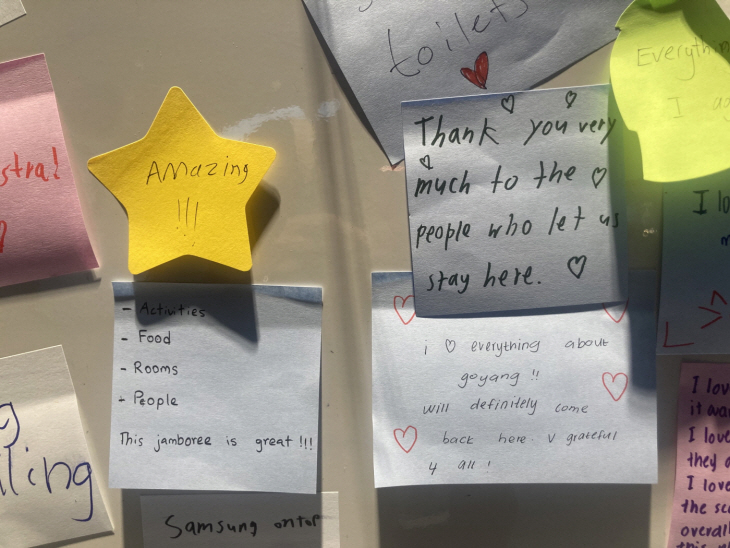 toilets
Everything
I
stra!
AMazing
!!!
Thank you very
much to the
people who let us
stay here.
I lo
- Activities
- Food
- Rooms
- People
This jamboree is great!!!
i ♡ everything about
goyang !!
will definitely come
back here. v grateful
4 all !
ling
Samsung ontop
I love
it
I love
they
I love
the
overall